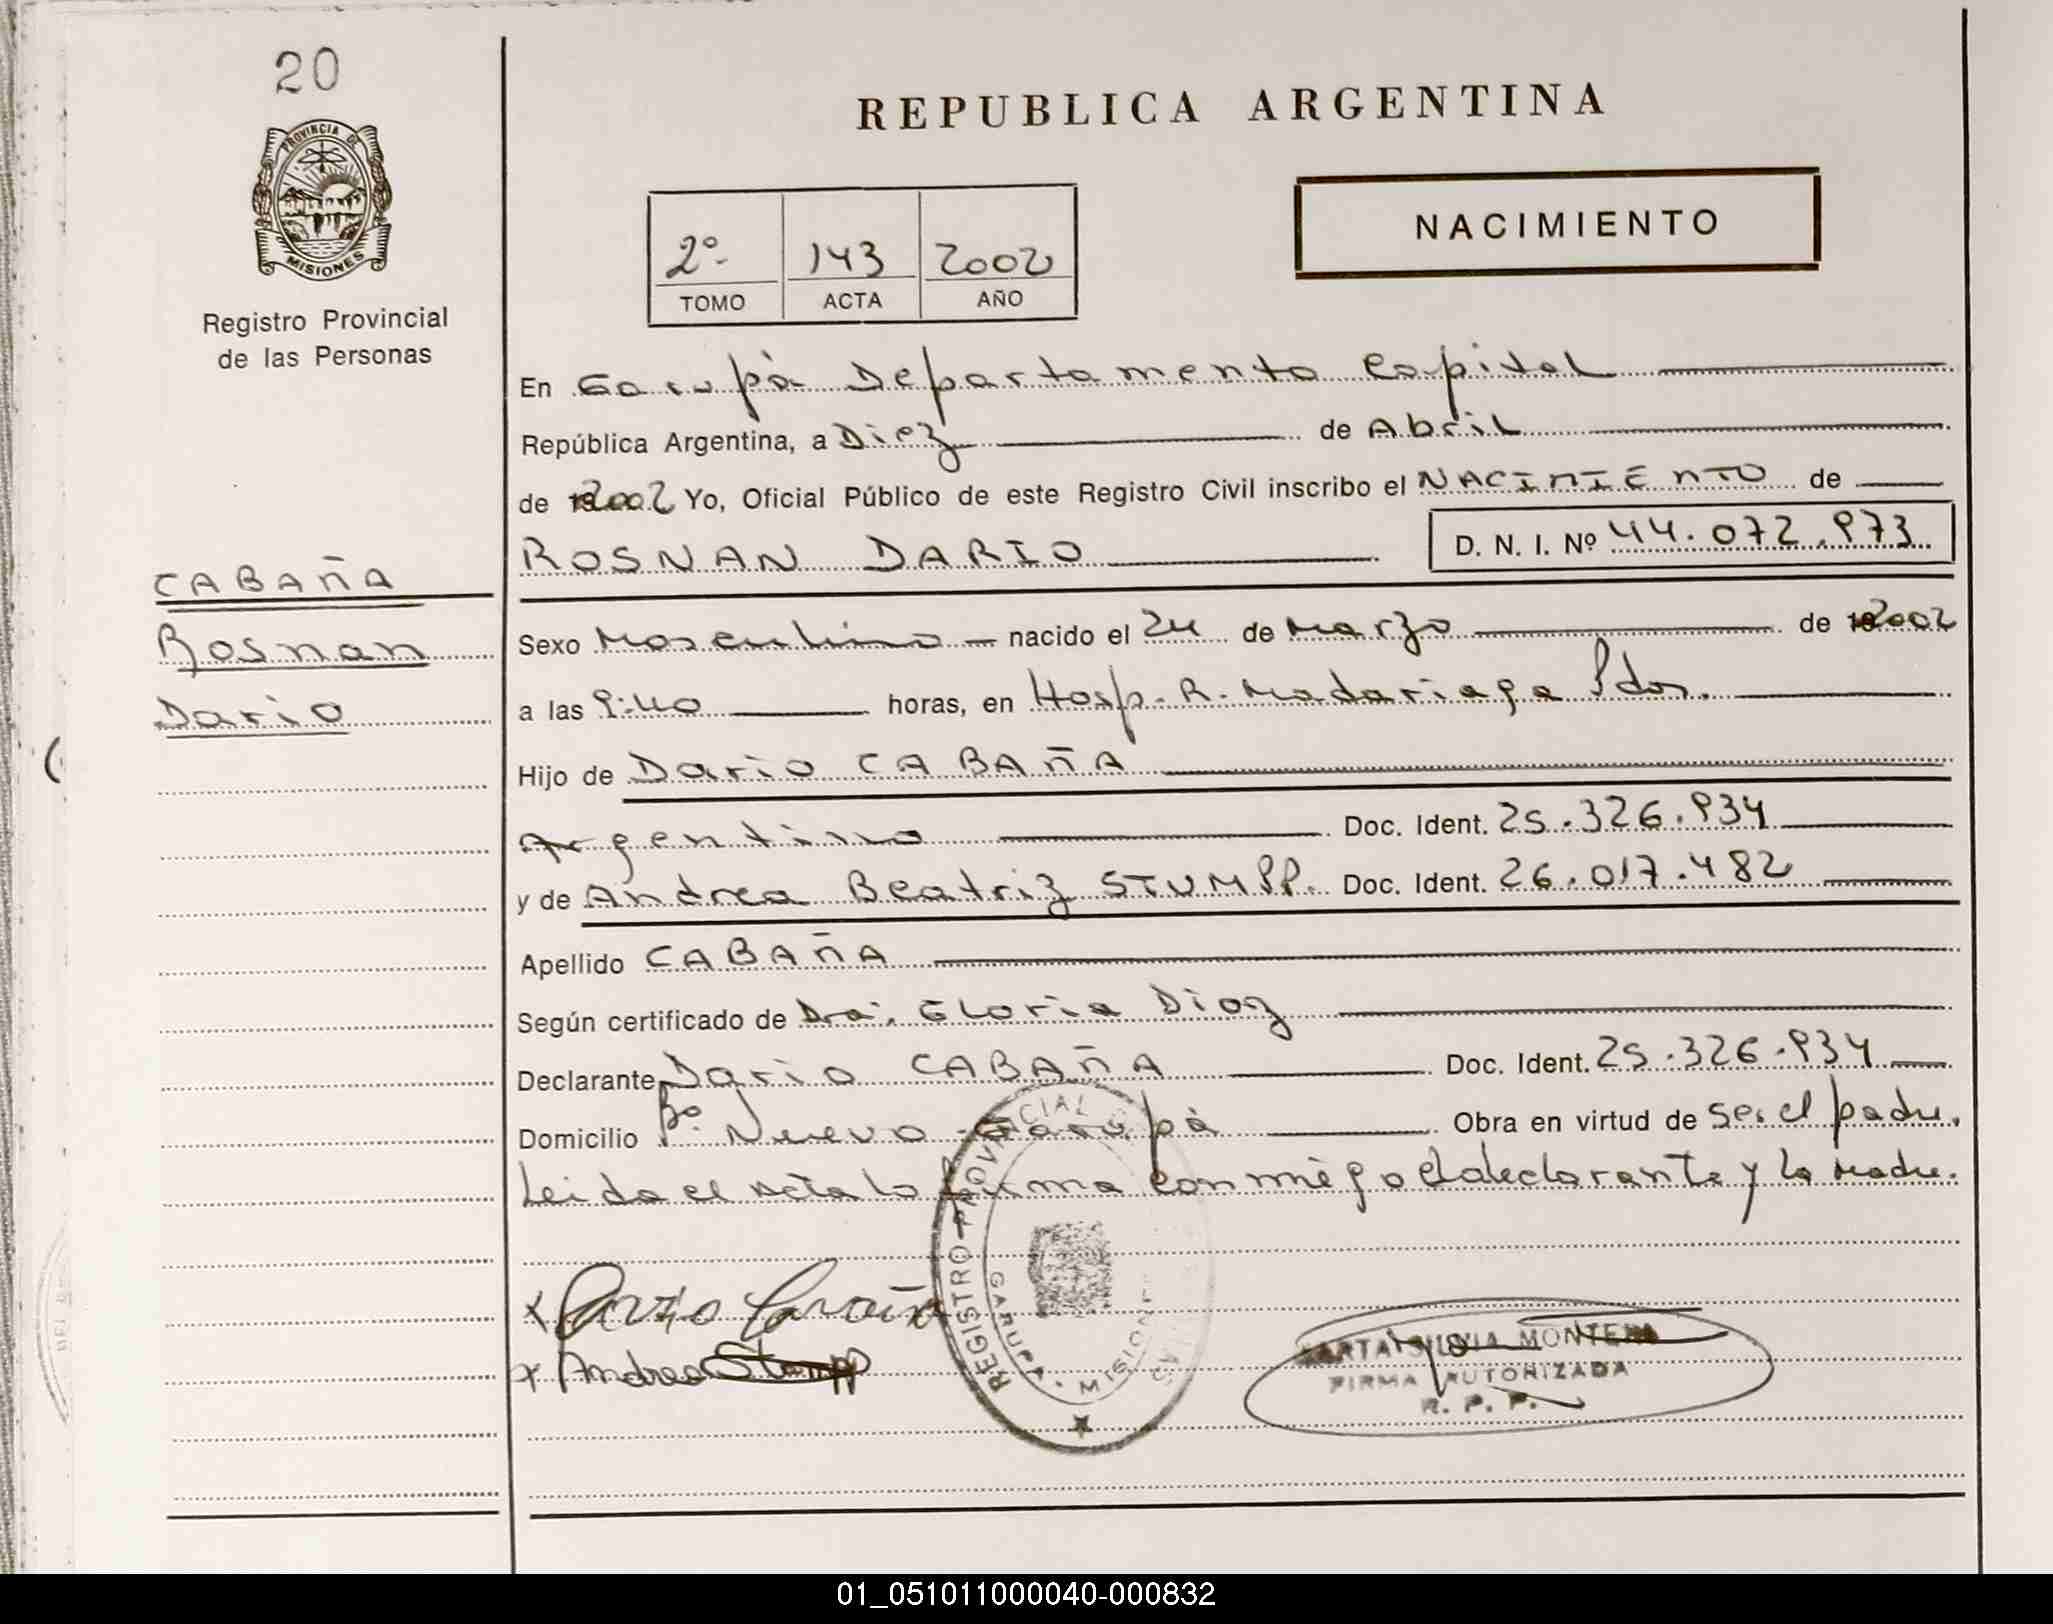 20
PROVINCIA DE
MISIONES
Registro Provincial
de las Personas
CABAÑA
Rosnan
Dario
REPUBLICA ARGENTINA
NACIMIENTO
2º 143 2002
TOMO ACTA AÑO
En Garupà Departamento Capital
República Argentina, a Diez de Abril
de 2002 Yo, Oficial Público de este Registro Civil inscribo el NACIMIENTO de
ROSNAN DARIO D. N. I. Nº 44.072.973
Sexo Masculino nacido el 24 de Marzo de 2002
a las 9:40 horas, en Hosp. R. Madariaga Pdas.
Hijo de Dario CABAÑA
Argentino Doc. Ident. 25.326.934
y de Andrea Beatriz STUMPP. Doc. Ident. 26.017.482
Apellido CABAÑA
Según certificado de Dra. Gloria Diaz
Declarante Dario CABAÑA Doc. Ident. 25.326.934
Domicilio Bº Nuevo Garupà Obra en virtud de ser el padre.
Leida el acta la firma conmigo el declarante y la madre.
REGISTRO PROVINCIAL
GARUPA - MISIONES
x Andrea Stumpp
MARTA SILVIA MONTERO
FIRMA AUTORIZADA
R. P. P.
01_051011000040-000832